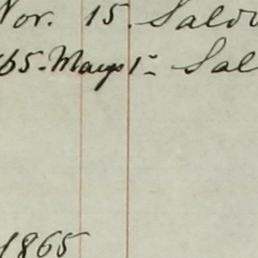 Nov. 15. Saldo
65-Mayo 1- Sal
1865